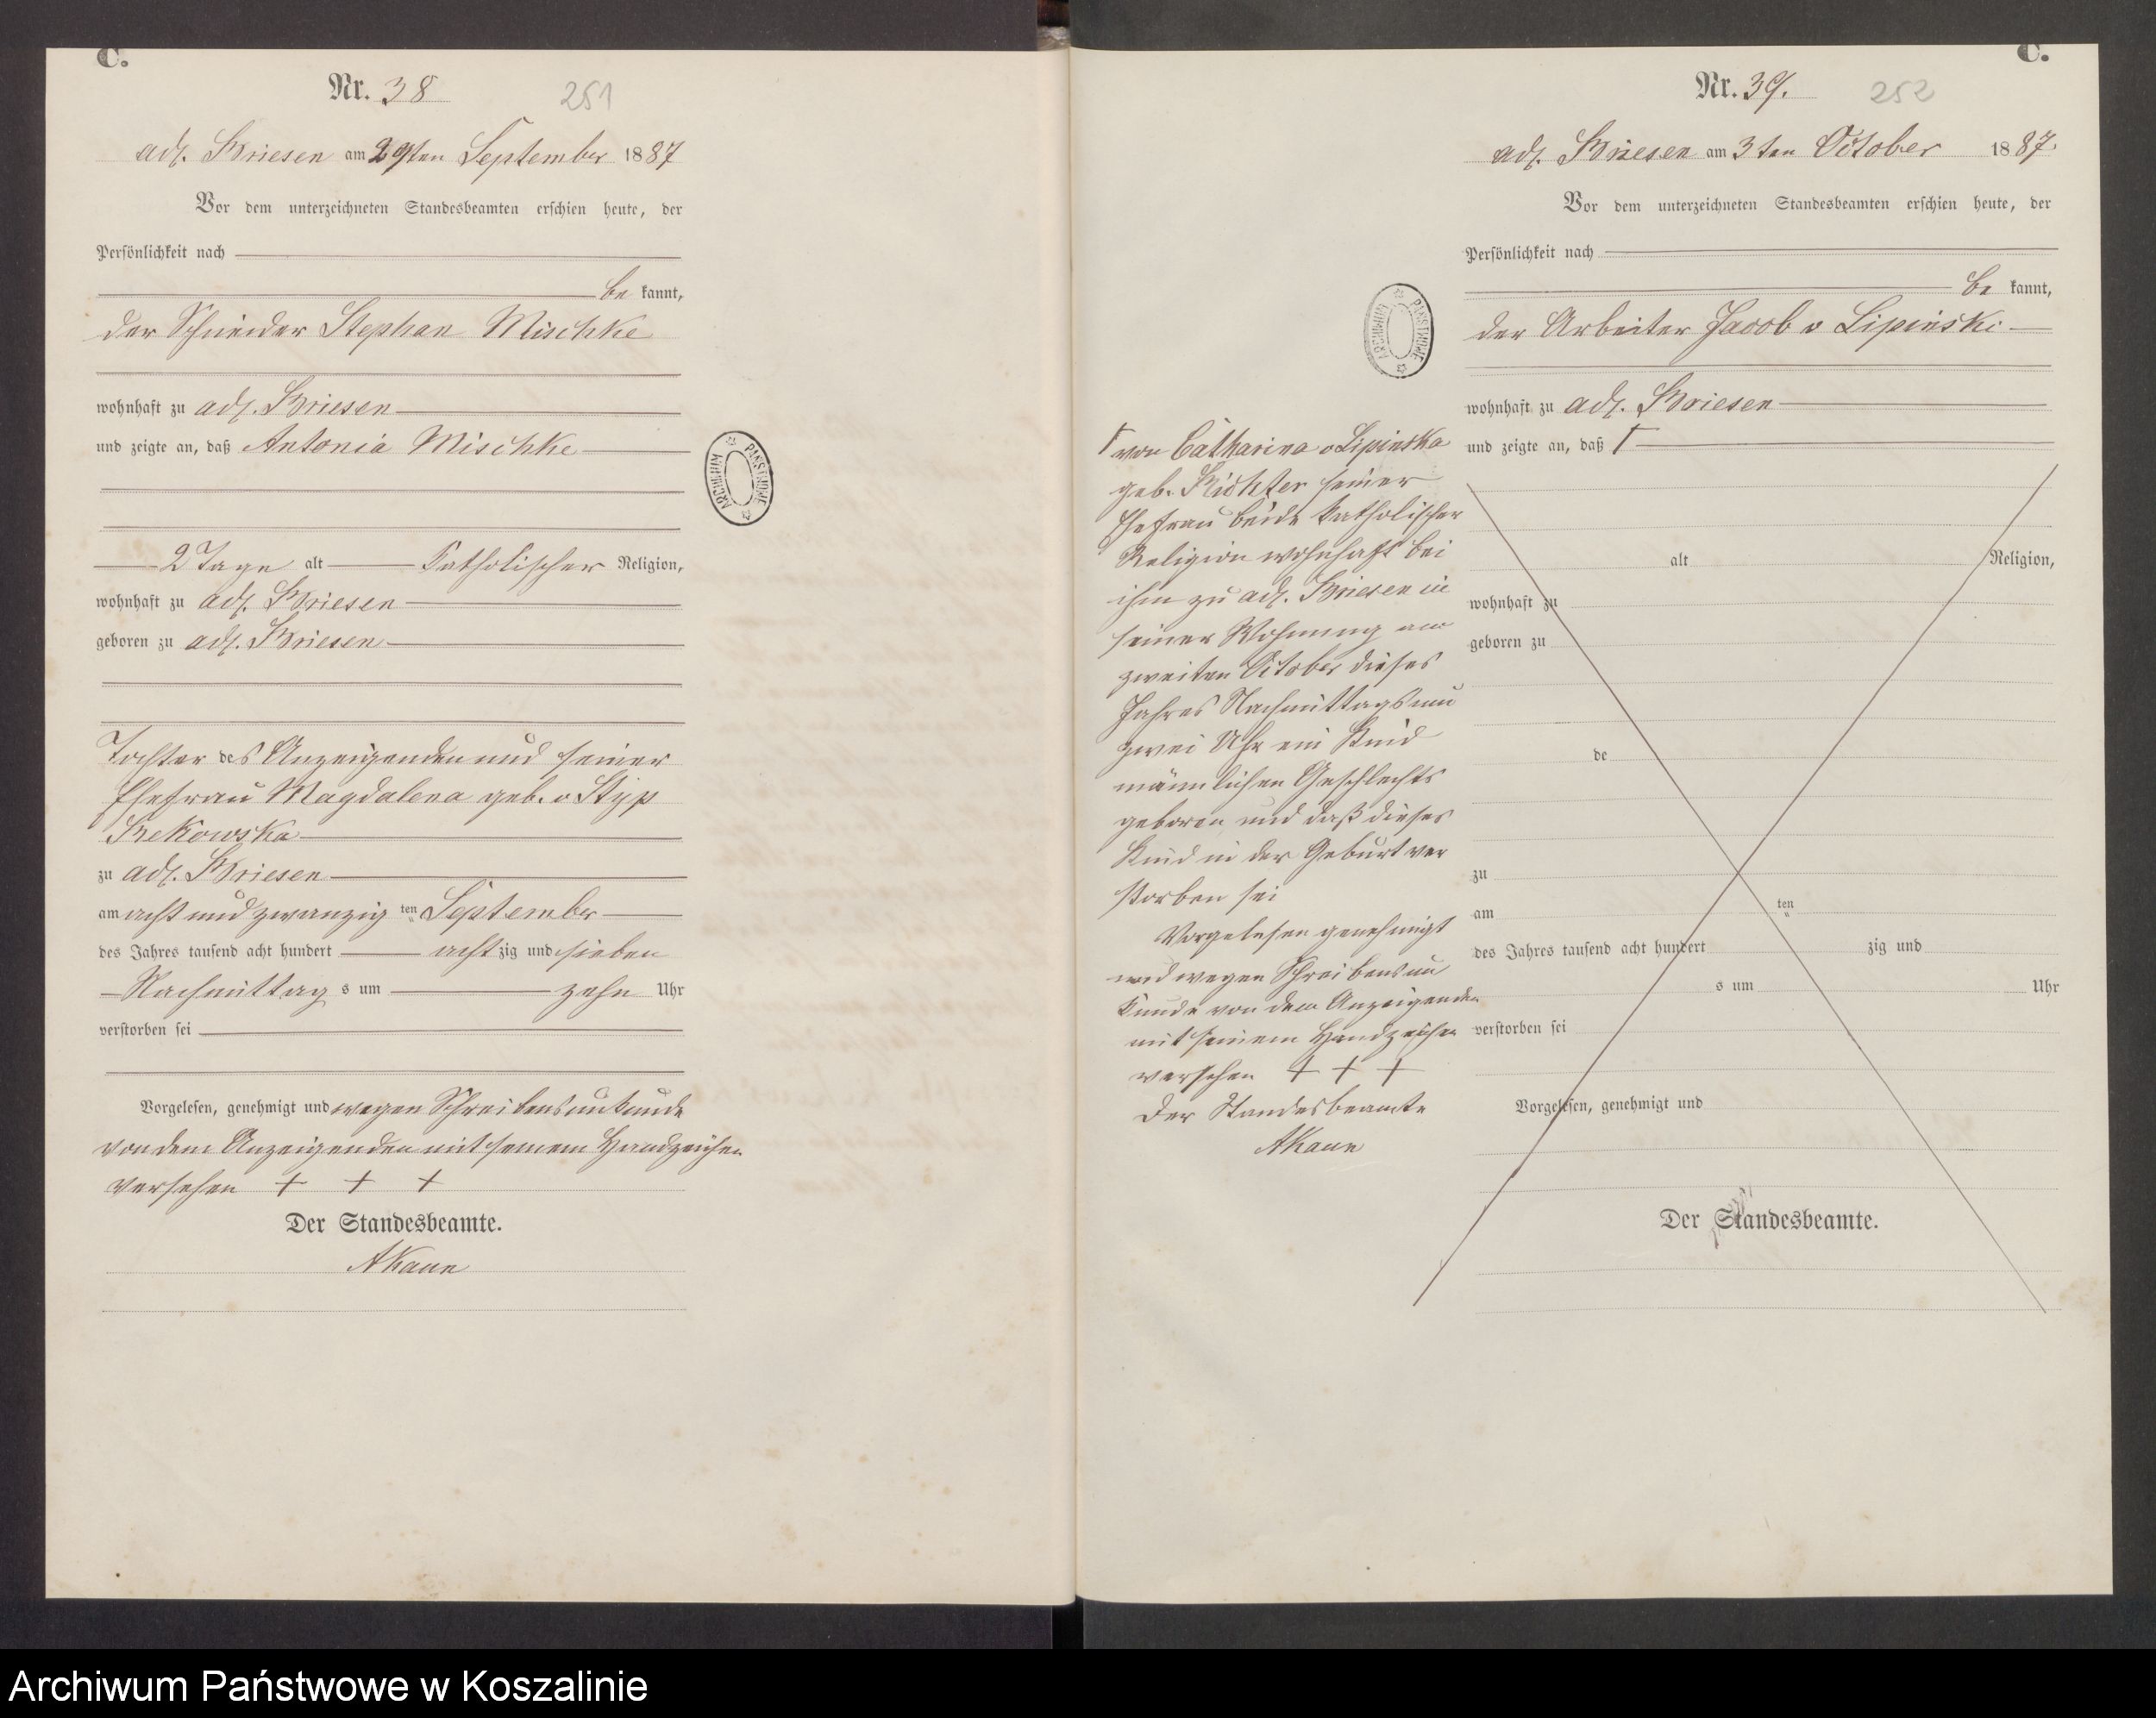 C.
Nr. 38
251
adl. Briesen am 29ten September 1887
Vor dem unterzeichneten Standesbeamten erschien heute, der
Persönlichkeit nach
be kannt,
der Schneider Stephan Mischke
wohnhaft zu adl. Briesen
und zeigte an, daß Antonia Mischke
2 Tage alt katholischer Religion,
wohnhaft zu adl. Briesen
geboren zu adl. Briesen
Tochter des Anzeigenden und seiner
Ehefrau Magdalena geb. v Styp
Rekowska
zu adl. Briesen
am acht und zwanzig ten September
des Jahres tausend acht hundert acht zig und sieben
Nachmittag s um zehn Uhr
verstorben sei
Vorgelesen, genehmigt und wegen Schreibensunkunde
von dem Anzeigenden mit seinem Handzeichen
versehen + + +
Der Standesbeamte.
AKaun
ARCHIWUM PAŃSTWOWE
C.
Nr. 39.
252
adl. Briesen am 3ten October 1887.
Vor dem unterzeichneten Standesbeamten erschien heute, der
Persönlichkeit nach
be kannt,
der Arbeiter Jacob v Lipinski
wohnhaft zu adl. Briesen
und zeigte an, daß Γ
alt Religion,
wohnhaft zu
geboren zu
de
zu
am ten
des Jahres tausend acht hundert zig und
s um Uhr
verstorben sei
Vorgelesen, genehmigt und
Der Standesbeamte.
ARCHIWUM PAŃSTWOWE
Γ von Catharina v Lipinska
geb. Richter seiner
Ehefrau beide katholischer
Religion wohnhaft bei
ihm zu adl. Briesen in
seiner Wohnung am
zweiten October dieses
Jahres Nachmittags um
zwei Uhr ein Kind
männlichen Geschlechts
geboren und daß dieses
Kind in der Geburt ver
storben sei
Vorgelesen genehmigt
und wegen Schreibensun
kunde von dem Anzeigenden
mit seinem Handzeichen
versehen + + +
Der Standesbeamte
AKaun
Archiwum Państwowe w Koszalinie